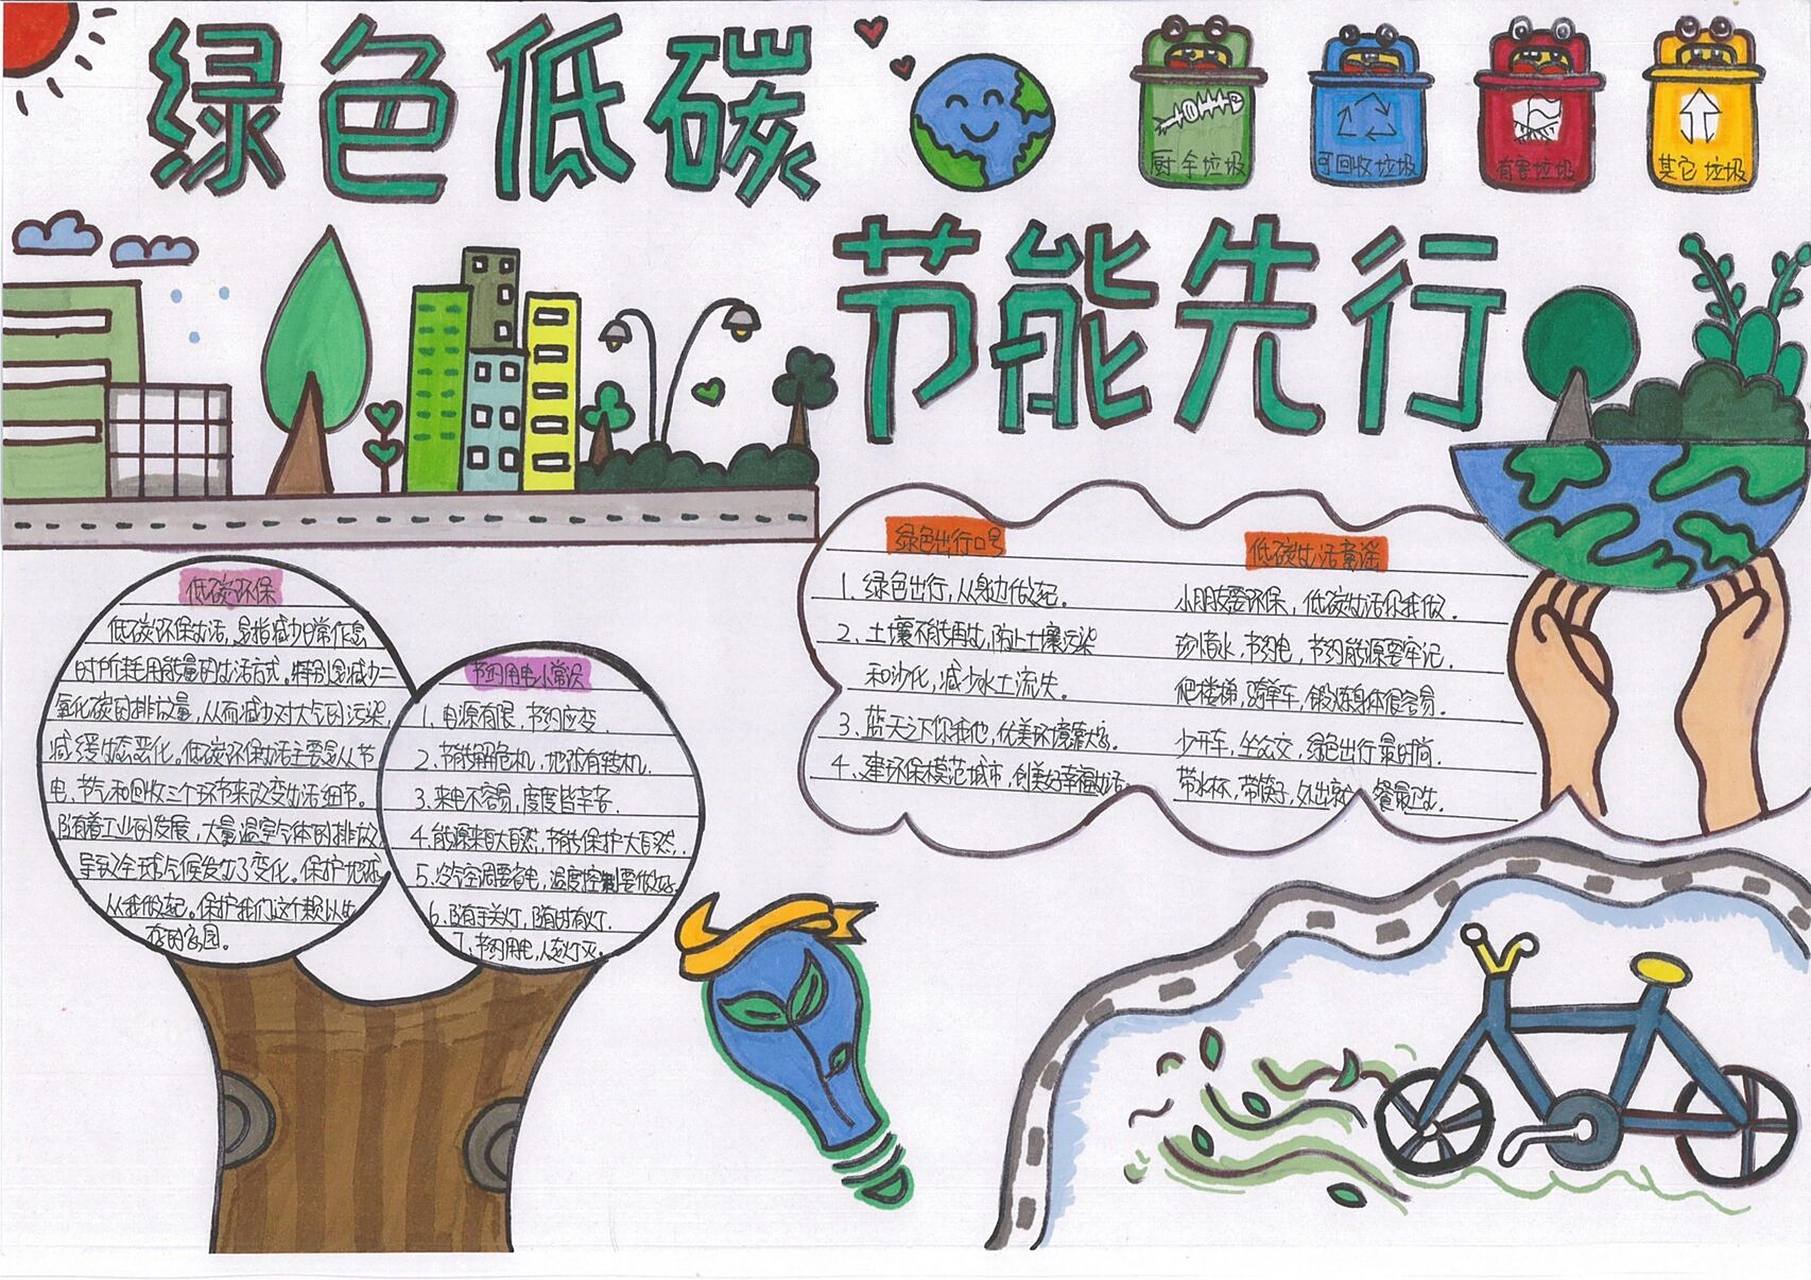 绿色低碳
厨余垃圾
可回收垃圾
有害垃圾
其它垃圾
节能先行
低碳环保
低碳环保生活,是指减少日常作息
时所耗用能量的生活方式。特别是减少二
氧化碳的排放量,从而减少对大气的污染,
减缓生态恶化。低碳环保生活主要是从节
电、节气和回收三个环节来改变生活细节。
随着工业的发展,大量温室气体的排放,
导致全球气候发生了变化。保护地球,
从我做起。保护我们这个赖以生
存的家园。
节约用电小常识
1、电源有限,节约应变.
2、节能解危机,地球有转机.
3.来电不容易,度度皆辛苦.
4.能源来自大自然,节能保护大自然.
5.冷气空调要省电,温度控制要做好.
6、随手关灯,随时有灯.
7、节约用电,人走灯灭.
绿色出行口号
1、绿色出行,从身边做起.
2、土壤不能再生,防止土壤污染
和沙化,减少水土流失.
3、蓝天之下你我他,优美环境靠大家.
4、建环保模范城市,创美好幸福生活.
低碳生活童谣
小朋友要环保,低碳生活你我做.
珍惜水,节约电,节约能源要牢记.
爬楼梯,骑单车,锻炼身体很容易.
少开车,坐公交,绿色出行最时尚.
带水杯,带筷子,外出就餐最卫生.